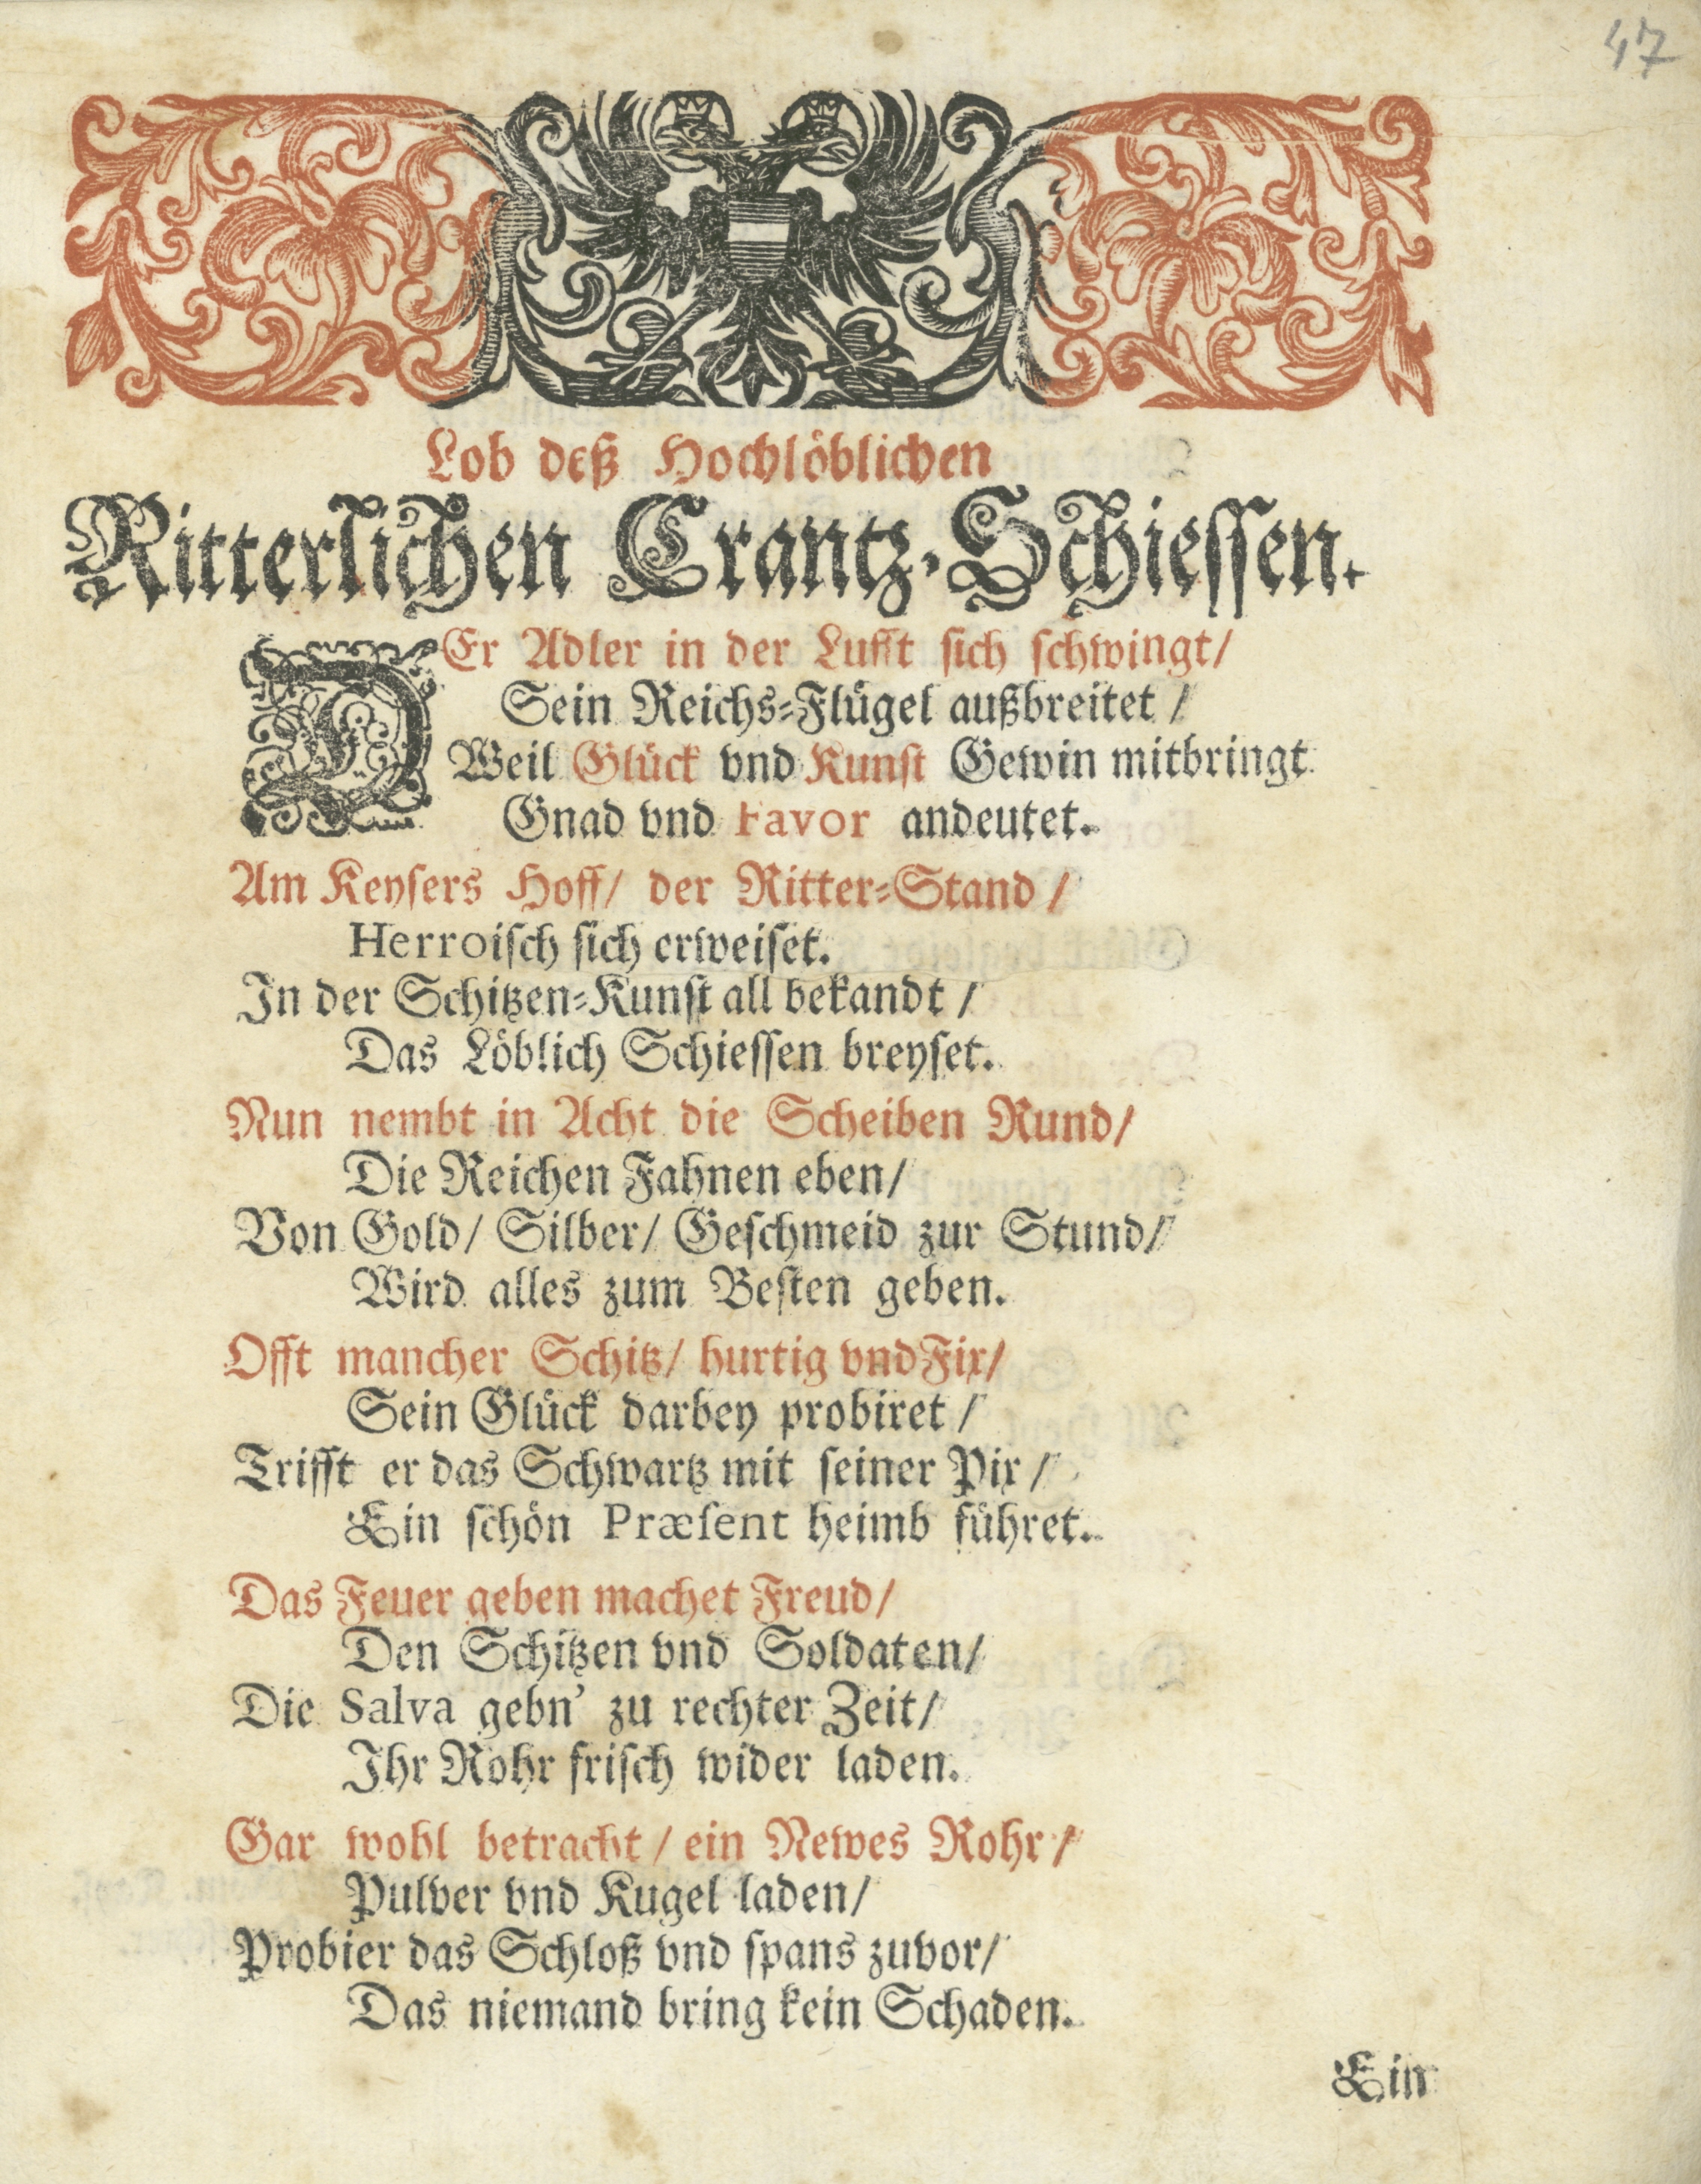 47
Lob deß Hochlöblichen
Ritterlichen Crantz-Schiessen.
DEr Adler in der Lufft sich schwingt/
Sein Reichs-Flügel außbreitet /
Weil Glück vnd Kunst Gewin mitbringt
Gnad vnd Favor andeutet.
Am Keysers Hoff/ der Ritter-Stand /
Herroisch sich erweiset.
In der Schitzen-Kunst all bekandt /
Das Löblich Schiessen breyset.
Nun nembt in Acht die Scheiben Rund/
Die Reichen Fahnen eben/
Von Gold/ Silber/ Geschmeid zur Stund/
Wird alles zum Besten geben.
Offt mancher Schitz/ hurtig vnd Fix/
Sein Glück darbey probiret /
Trifft er das Schwartz mit seiner Pix /
Ein schön Præsent heimb führet.
Das Feuer geben machet Freud/
Den Schitzen vnd Soldaten/
Die Salva gebn' zu rechter Zeit/
Ihr Rohr frisch wider laden.
Gar wohl betracht / ein Newes Rohr /
Pulver vnd Kugel laden/
Probier das Schloß vnd spans zuvor/
Das niemand bring kein Schaden.
Ein